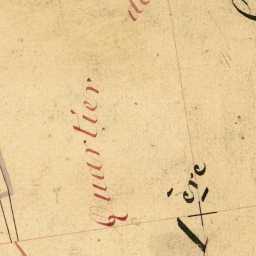 Quartier
1ère